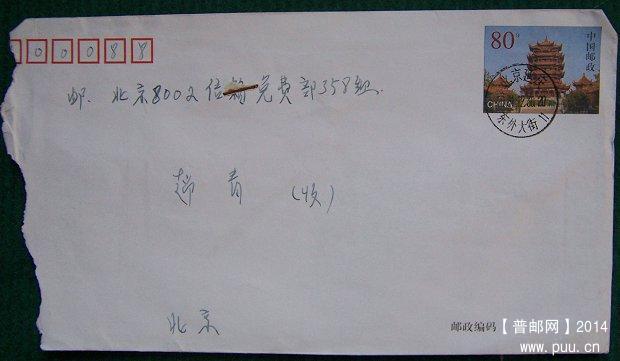 00088
80分
中国邮政
CHINA
东外大街
邮. 北京8002信箱免费部358组.
赵青 (收)
北京
邮政编码【普邮网】2014
www.puu.cn